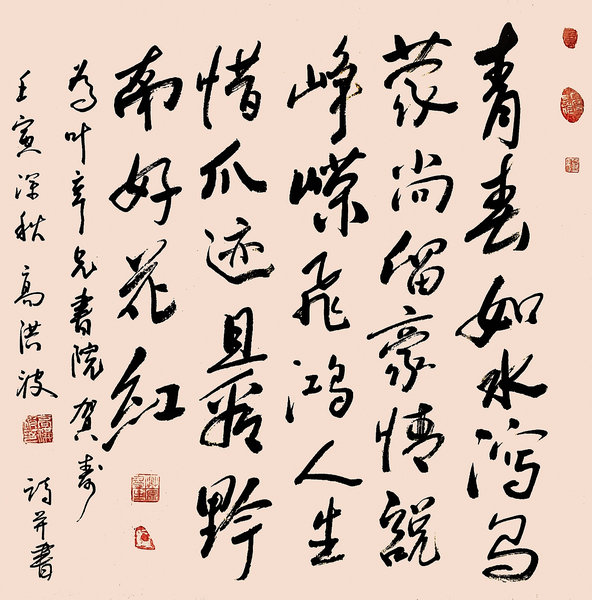 青春如水泻乌
蒙尚留豪情說
峥嵘飞鸿人生
惜爪迹且看黔
南好花紅
为叶辛兄書院贺寿
壬寅深秋 高洪波 诗并書